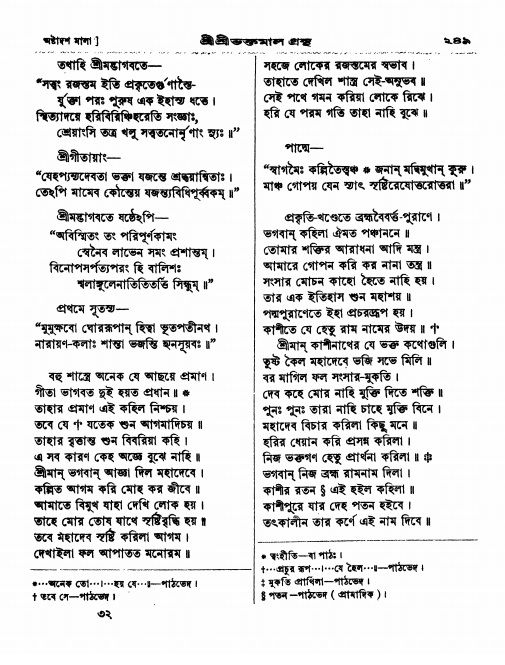 অষ্টাদশ মালা ]
শ্রীশ্রীভক্তমাল গ্রন্থ
২৪৯
তথাহি শ্রীমদ্ভাগবতে—
“সত্ত্বং রজস্তম ইতি প্রকৃতের্গুণাস্তৈ-
র্যুক্তা পরঃ পুরুষ এক ইহাস্য ধত্তে ।
স্থিত্যাদয়ে হরিবিরিঞ্চিহরেতি সংজ্ঞাঃ,
শ্রেয়াংসি তত্র খলু সত্ত্বতনোর্নৃণাং স্যুঃ ॥”
শ্রীগীতায়াং—
“যেঽপ্যন্যদেবতা ভক্তা যজন্তে শ্রদ্ধয়ান্বিতাঃ ।
তেঽপি মামেব কৌন্তেয় যজন্ত্যবিধিপূর্ব্বকম্ ॥”
শ্রীমদ্ভাগবতে ষষ্ঠেঽপি—
“অবিস্মিতং তং পরিপূর্ণকামং
স্বেনৈব লাভেন সমং প্রশান্তম্ ।
বিনোপসর্পত্যপরং হি বালিশঃ
শ্বলাঙ্গুলেনাতিতিতর্ত্তি সিন্ধুম্ ॥”
প্রথমে সূতস্য—
“মুমুক্ষবো ঘোররূপান্ হিত্বা ভূতপতীনথ ।
নারায়ণ-কলাঃ শান্তা ভজন্তি হ্যনসূয়বঃ ॥”
বহু শাস্ত্রে অনেক যে আছয়ে প্রমাণ ।
গীতা ভাগবত দুই হয়ত প্রধান ॥ *
তাহার প্রমাণ এই কহিল নিশ্চয় ।
তবে যে † যতেক শুন আগমাদিচয় ॥
তাহার বৃত্তান্ত শুন বিবরিয়া কহি ।
এ সব কারণ কেহ অজ্ঞে বুঝে নাহি ॥
শ্রীমান্ ভগবান্ আজ্ঞা দিল মহাদেবে ।
কল্পিত আগম করি মোহ কর জীবে ॥
আমাতে বিমুখ যাহা দেখি লোক হয় ।
তাহে মোর তোষ যাথে সৃষ্টিবৃদ্ধি হয় ॥
তবে মহাদেব সৃষ্টি করিলা আগম ।
দেখাইলা ফল আপাতত মনোরম ॥
*···অনেক তো···।···হয় যে···॥—পাঠভেদ ।
† তবে সে—পাঠভেদ ।
৩২
সহজে লোকের রজস্তমের স্বভাব ।
তাহাতে দেখিল শাস্ত্র সেই-অনুভব ॥
সেই পথে গমন করিয়া লোকে রিঝে ।
হরি যে পরম গতি তাহা নাহি বুঝে ॥
পাদ্মে—
“স্বাগমৈঃ কল্পিতৈস্ত্বঞ্চ * জনান্ মদ্বিমুখান্ কুরু ।
মাঞ্চ গোপয় যেন স্যাৎ সৃষ্টিরেষোত্তরোত্তরা ॥”
প্রকৃতি-খণ্ডেতে ব্রহ্মবৈবর্ত্ত-পুরাণে ।
ভগবান্ কহিলা ঐমত পঞ্চাননে ॥
তোমার শক্তির আরাধনা আদি মন্ত্র ।
আমারে গোপন করি কর নানা তন্ত্র ॥
সংসার মোচন কাহো হৈতে নাহি হয় ।
তার এক ইতিহাস শুন মহাশয় ॥
পদ্মপুরাণেতে ইহা প্রচরদ্রূপ হয় ।
কাশীতে যে হেতু রাম নামের উদয় ॥ †
শ্রীমান্ কাশীনাথের যে ভক্ত কথোগুলি ।
তুষ্ট কৈল মহাদেবে ভজি সভে মিলি ॥
বর মাগিল ফল সংসার-মুকতি ।
দেব কহে মোর নাহি মুক্তি দিতে শক্তি ॥
পুনঃ পুনঃ তারা নাহি চাহে মুক্তি বিনে ।
মহাদেব বিচার করিলা কিছু মনে ॥
হরির ধেয়ান করি প্রসন্ন করিলা ।
নিজ ভক্তগণ হেতু প্রার্থনা করিলা ॥ ‡
ভগবান্ নিজ ব্রহ্ম রামনাম দিলা ।
কাশীর রতন § এই হইল কহিলা ॥
কাশীপুরে যার দেহ পতন হইবে ।
তৎকালীন তার কর্ণে এই নাম দিবে ॥
* ত্বংহীতি—বা পাঠঃ ।
†···প্রচুর রূপ···।···যে হৈল···॥—পাঠভেদ ।
‡ মুকতি প্রার্থিলা—পাঠভেদ ।
§ পতন—পাঠভেদ ( প্রামাদিক ) ।